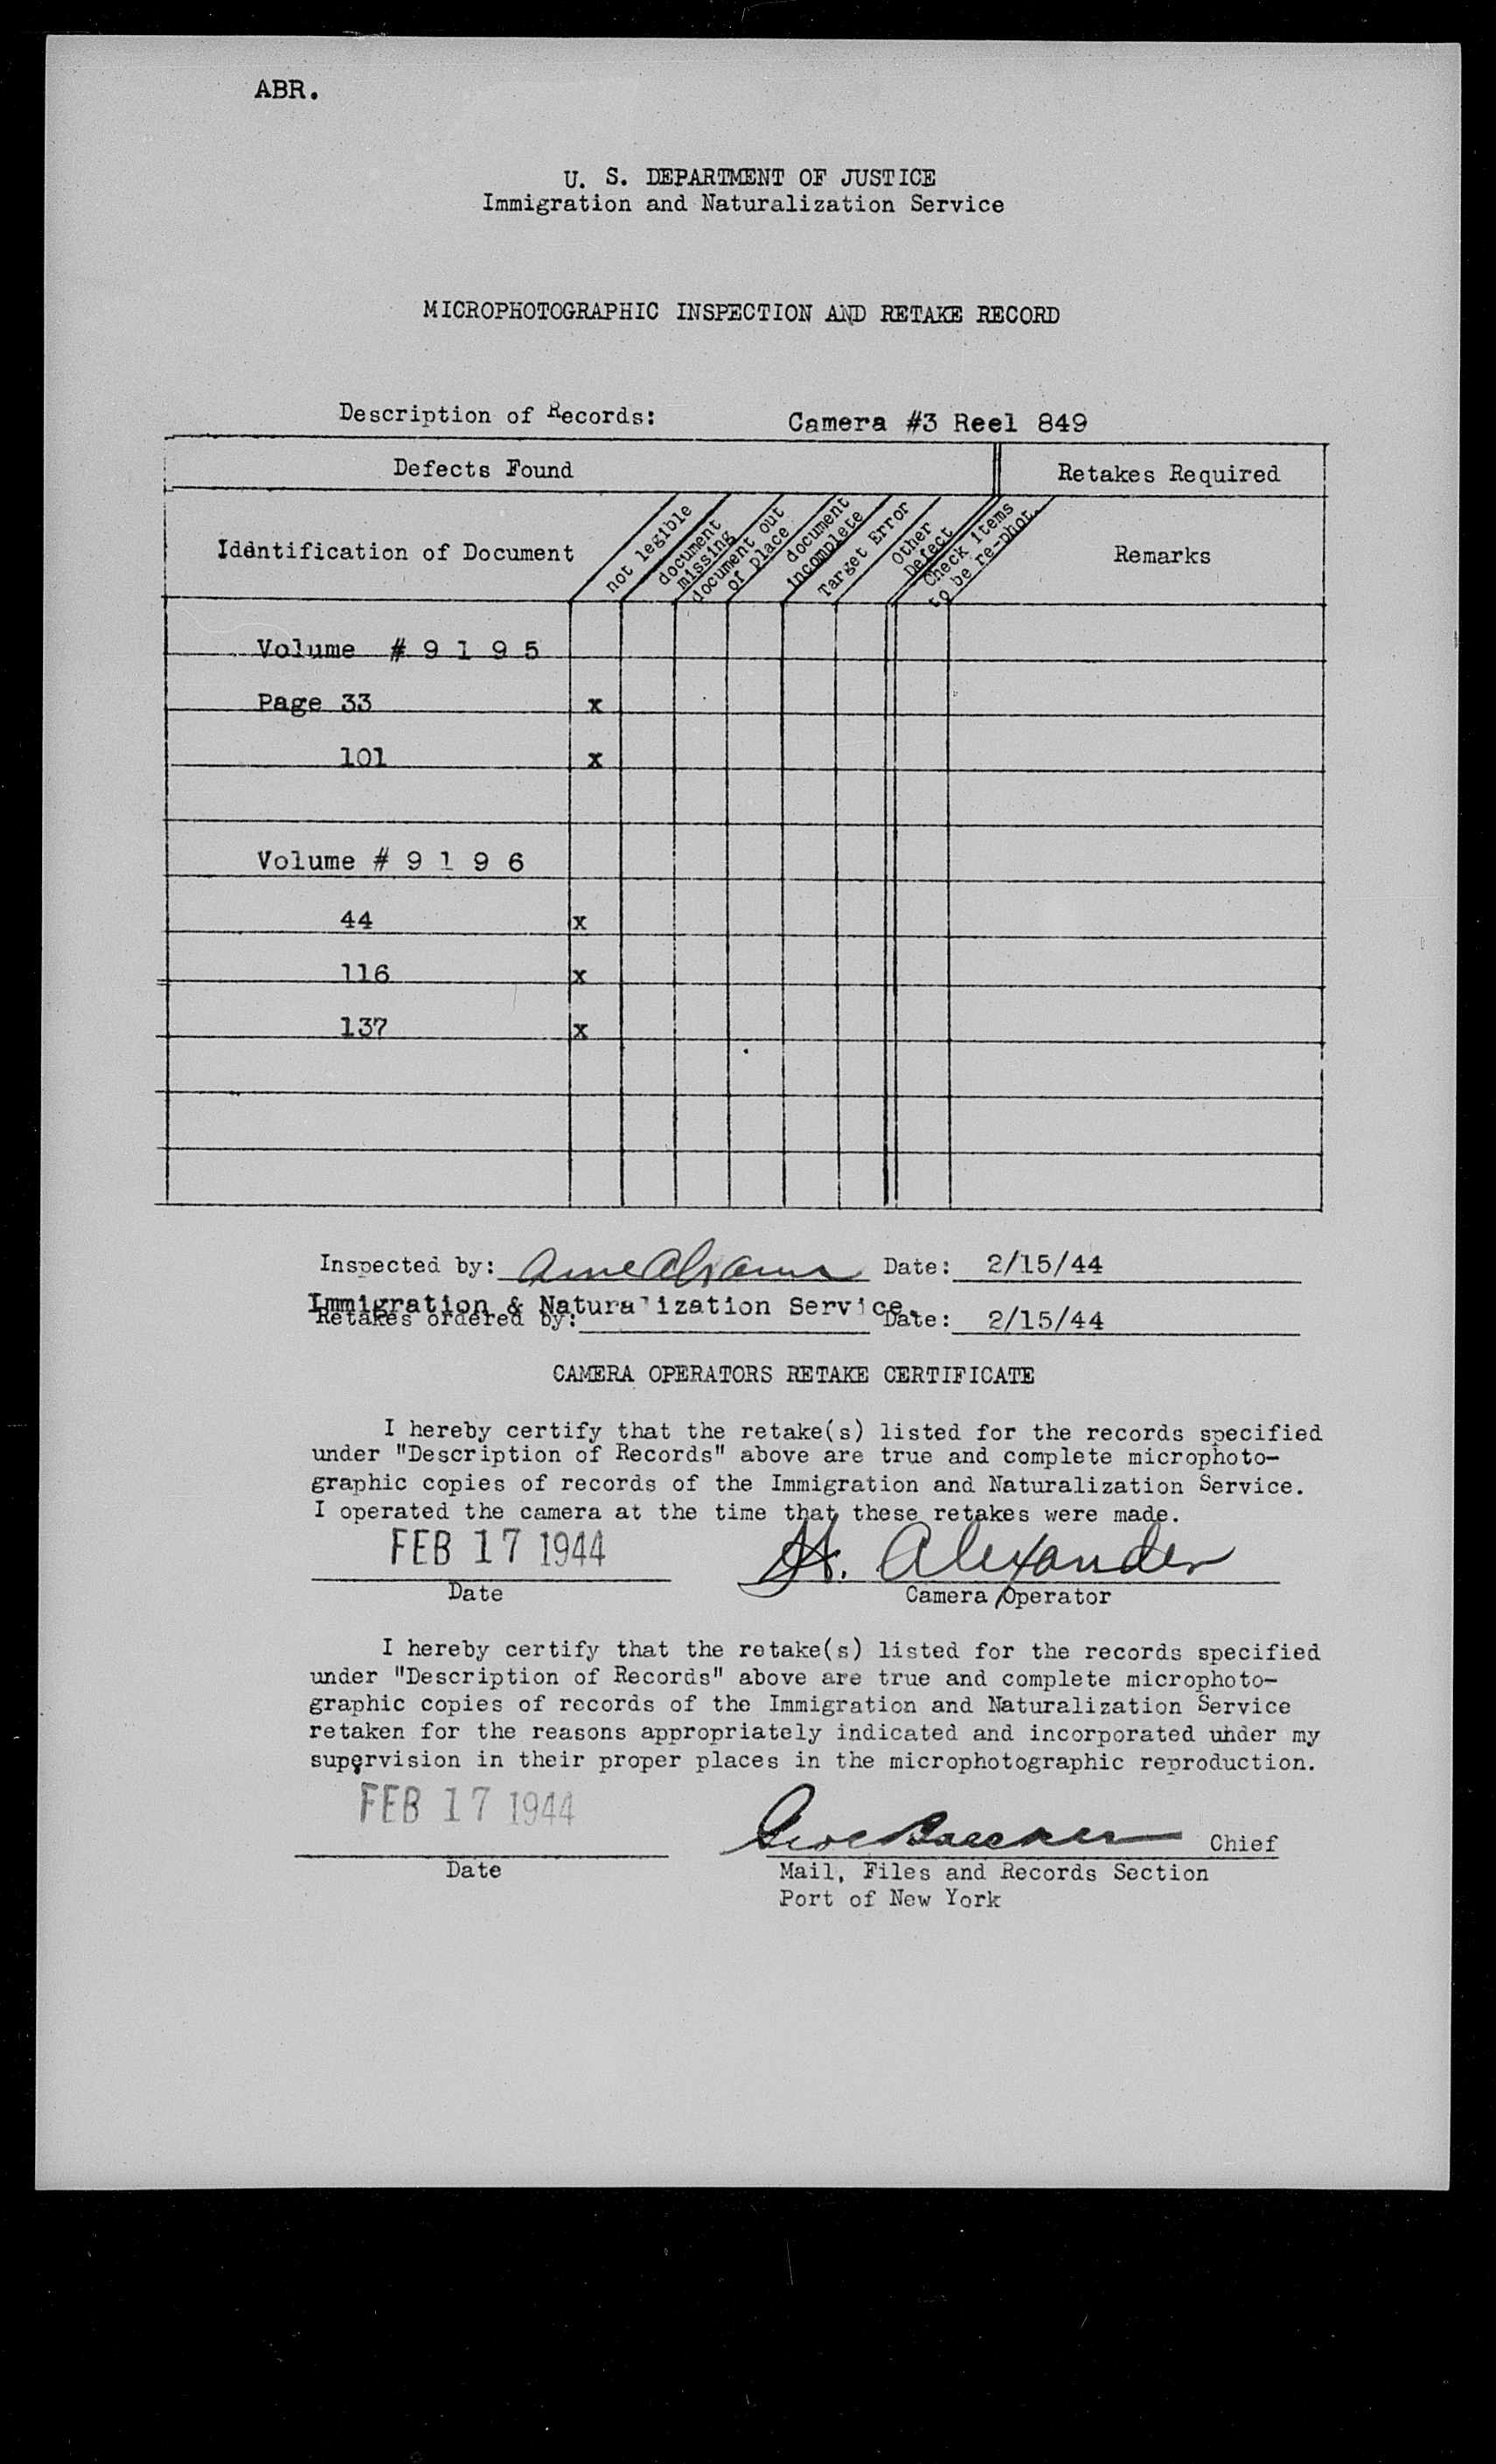 ABR.
U. S. DEPARTMENT OF JUSTICE
Immigration and Naturalization Service
MICROPHOTOGRAPHIC INSPECTION AND RETAKE RECORD
Description of Records: Camera #3 Reel 849
Defects Found Retakes Required
Identification of Document
not legible
document missing
document out of place
document incomplete
Target Error
Other Defect
Check items to be re-phot.
Remarks
Volume # 9 1 9 5
Page 33 x
101 x
Volume # 9 1 9 6
44 x
116 x
137 x
Inspected by: Date: 2/15/44
Immigration & Naturalization Service.
Retakes ordered by: Date: 2/15/44
CAMERA OPERATORS RETAKE CERTIFICATE
I hereby certify that the retake(s) listed for the records specified
under "Description of Records" above are true and complete microphoto-
graphic copies of records of the Immigration and Naturalization Service.
I operated the camera at the time that these retakes were made.
FEB 17 1944 H. Alexander
Date Camera Operator
I hereby certify that the retake(s) listed for the records specified
under "Description of Records" above are true and complete microphoto-
graphic copies of records of the Immigration and Naturalization Service
retaken for the reasons appropriately indicated and incorporated under my
supervision in their proper places in the microphotographic reproduction.
FEB 17 1944
Chief
Date Mail, Files and Records Section
Port of New York